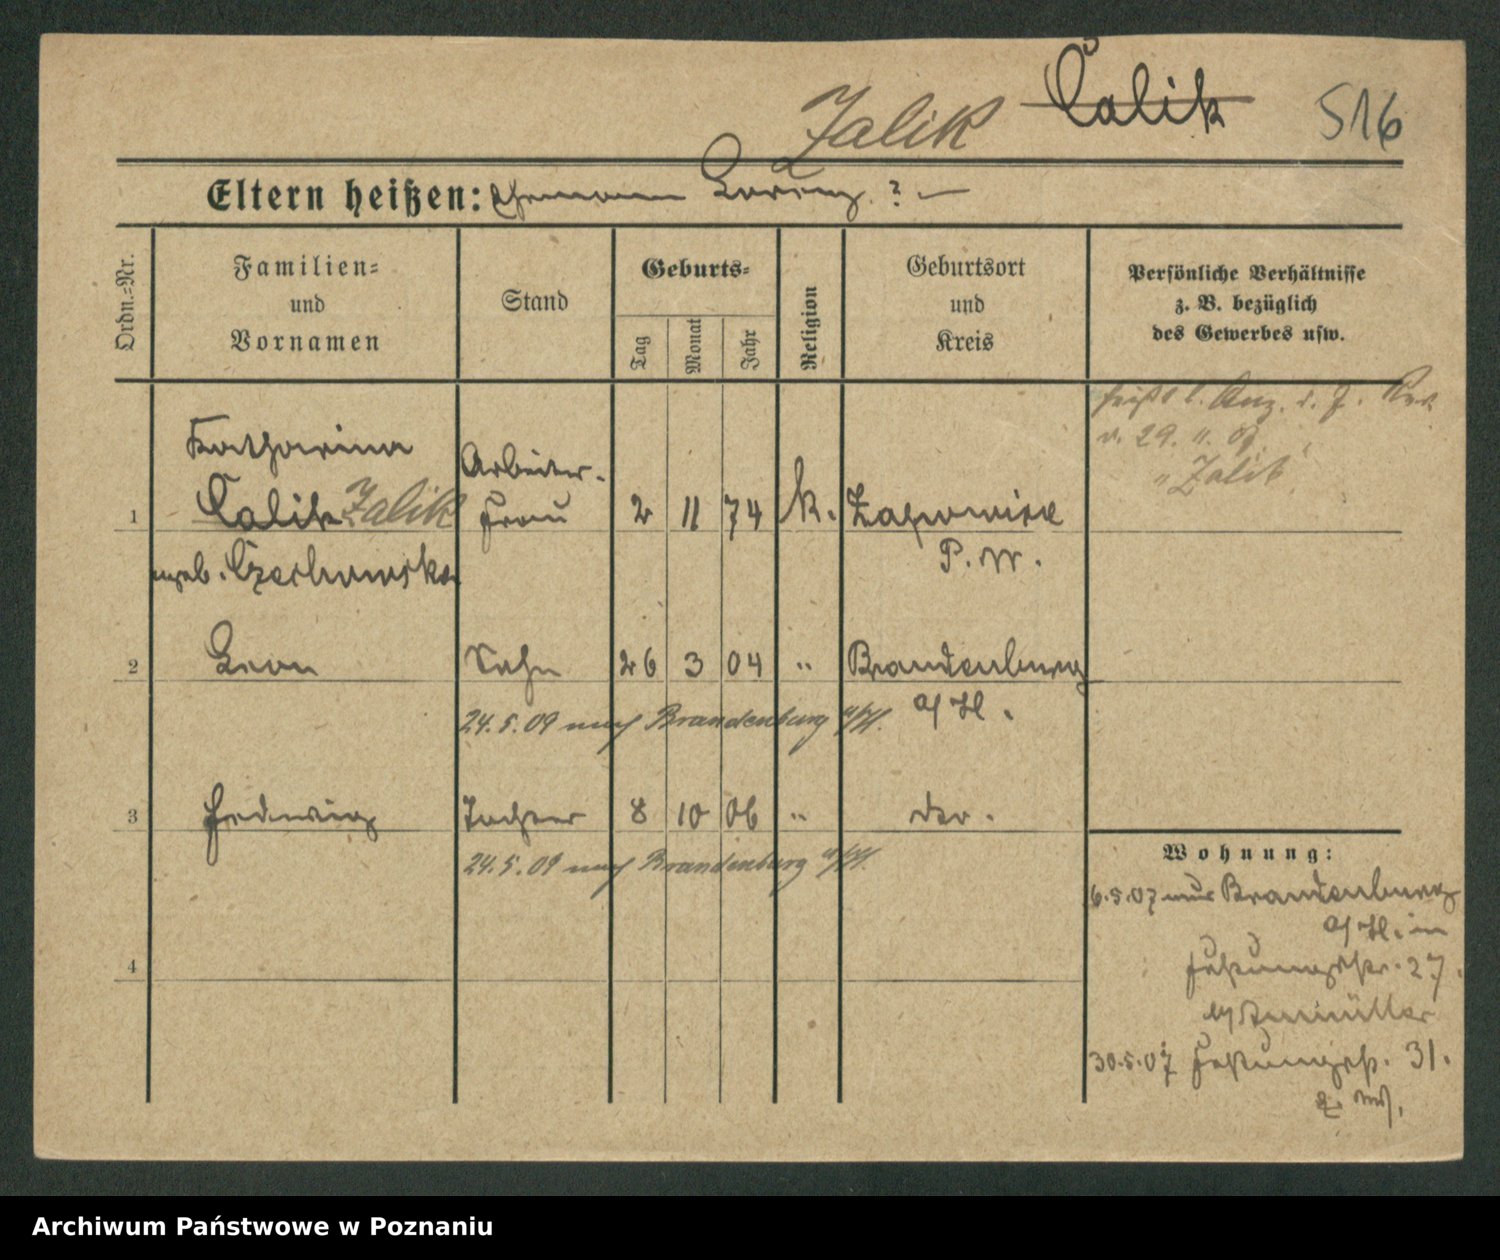 Zalik Calik 516
Eltern heißen: Ehemann Lorenz ? —
Ordn.-Nr.
Familien-
und
Vornamen
Stand
Geburts-
Tag
Monat
Jahr
Religion
Geburtsort
und
Kreis
Persönliche Verhältnisse
z. B. bezüglich
des Gewerbes usw.
heißt l. Anz. d.
v. 29. 11. 07
"Zalik"
Katharina Arbeiter-
1 Calik Zalik frau 2 11 74 k.
P. W.
geb. Czechowska
2 Leon Sohn 26 3 04 " Brandenburg
a/H.
24.5.09 nach Brandenburg a/H.
3 Hedwig Tochter 8 10 06 " do.
24.5.09 nach Brandenburg a/H.
4
Wohnung:
6.5.07 aus Brandenburg
a/H. in
Festungsstr. 27.
b/
30.5.07 Festungsstr. 31.
Archiwum Państwowe w Poznaniu